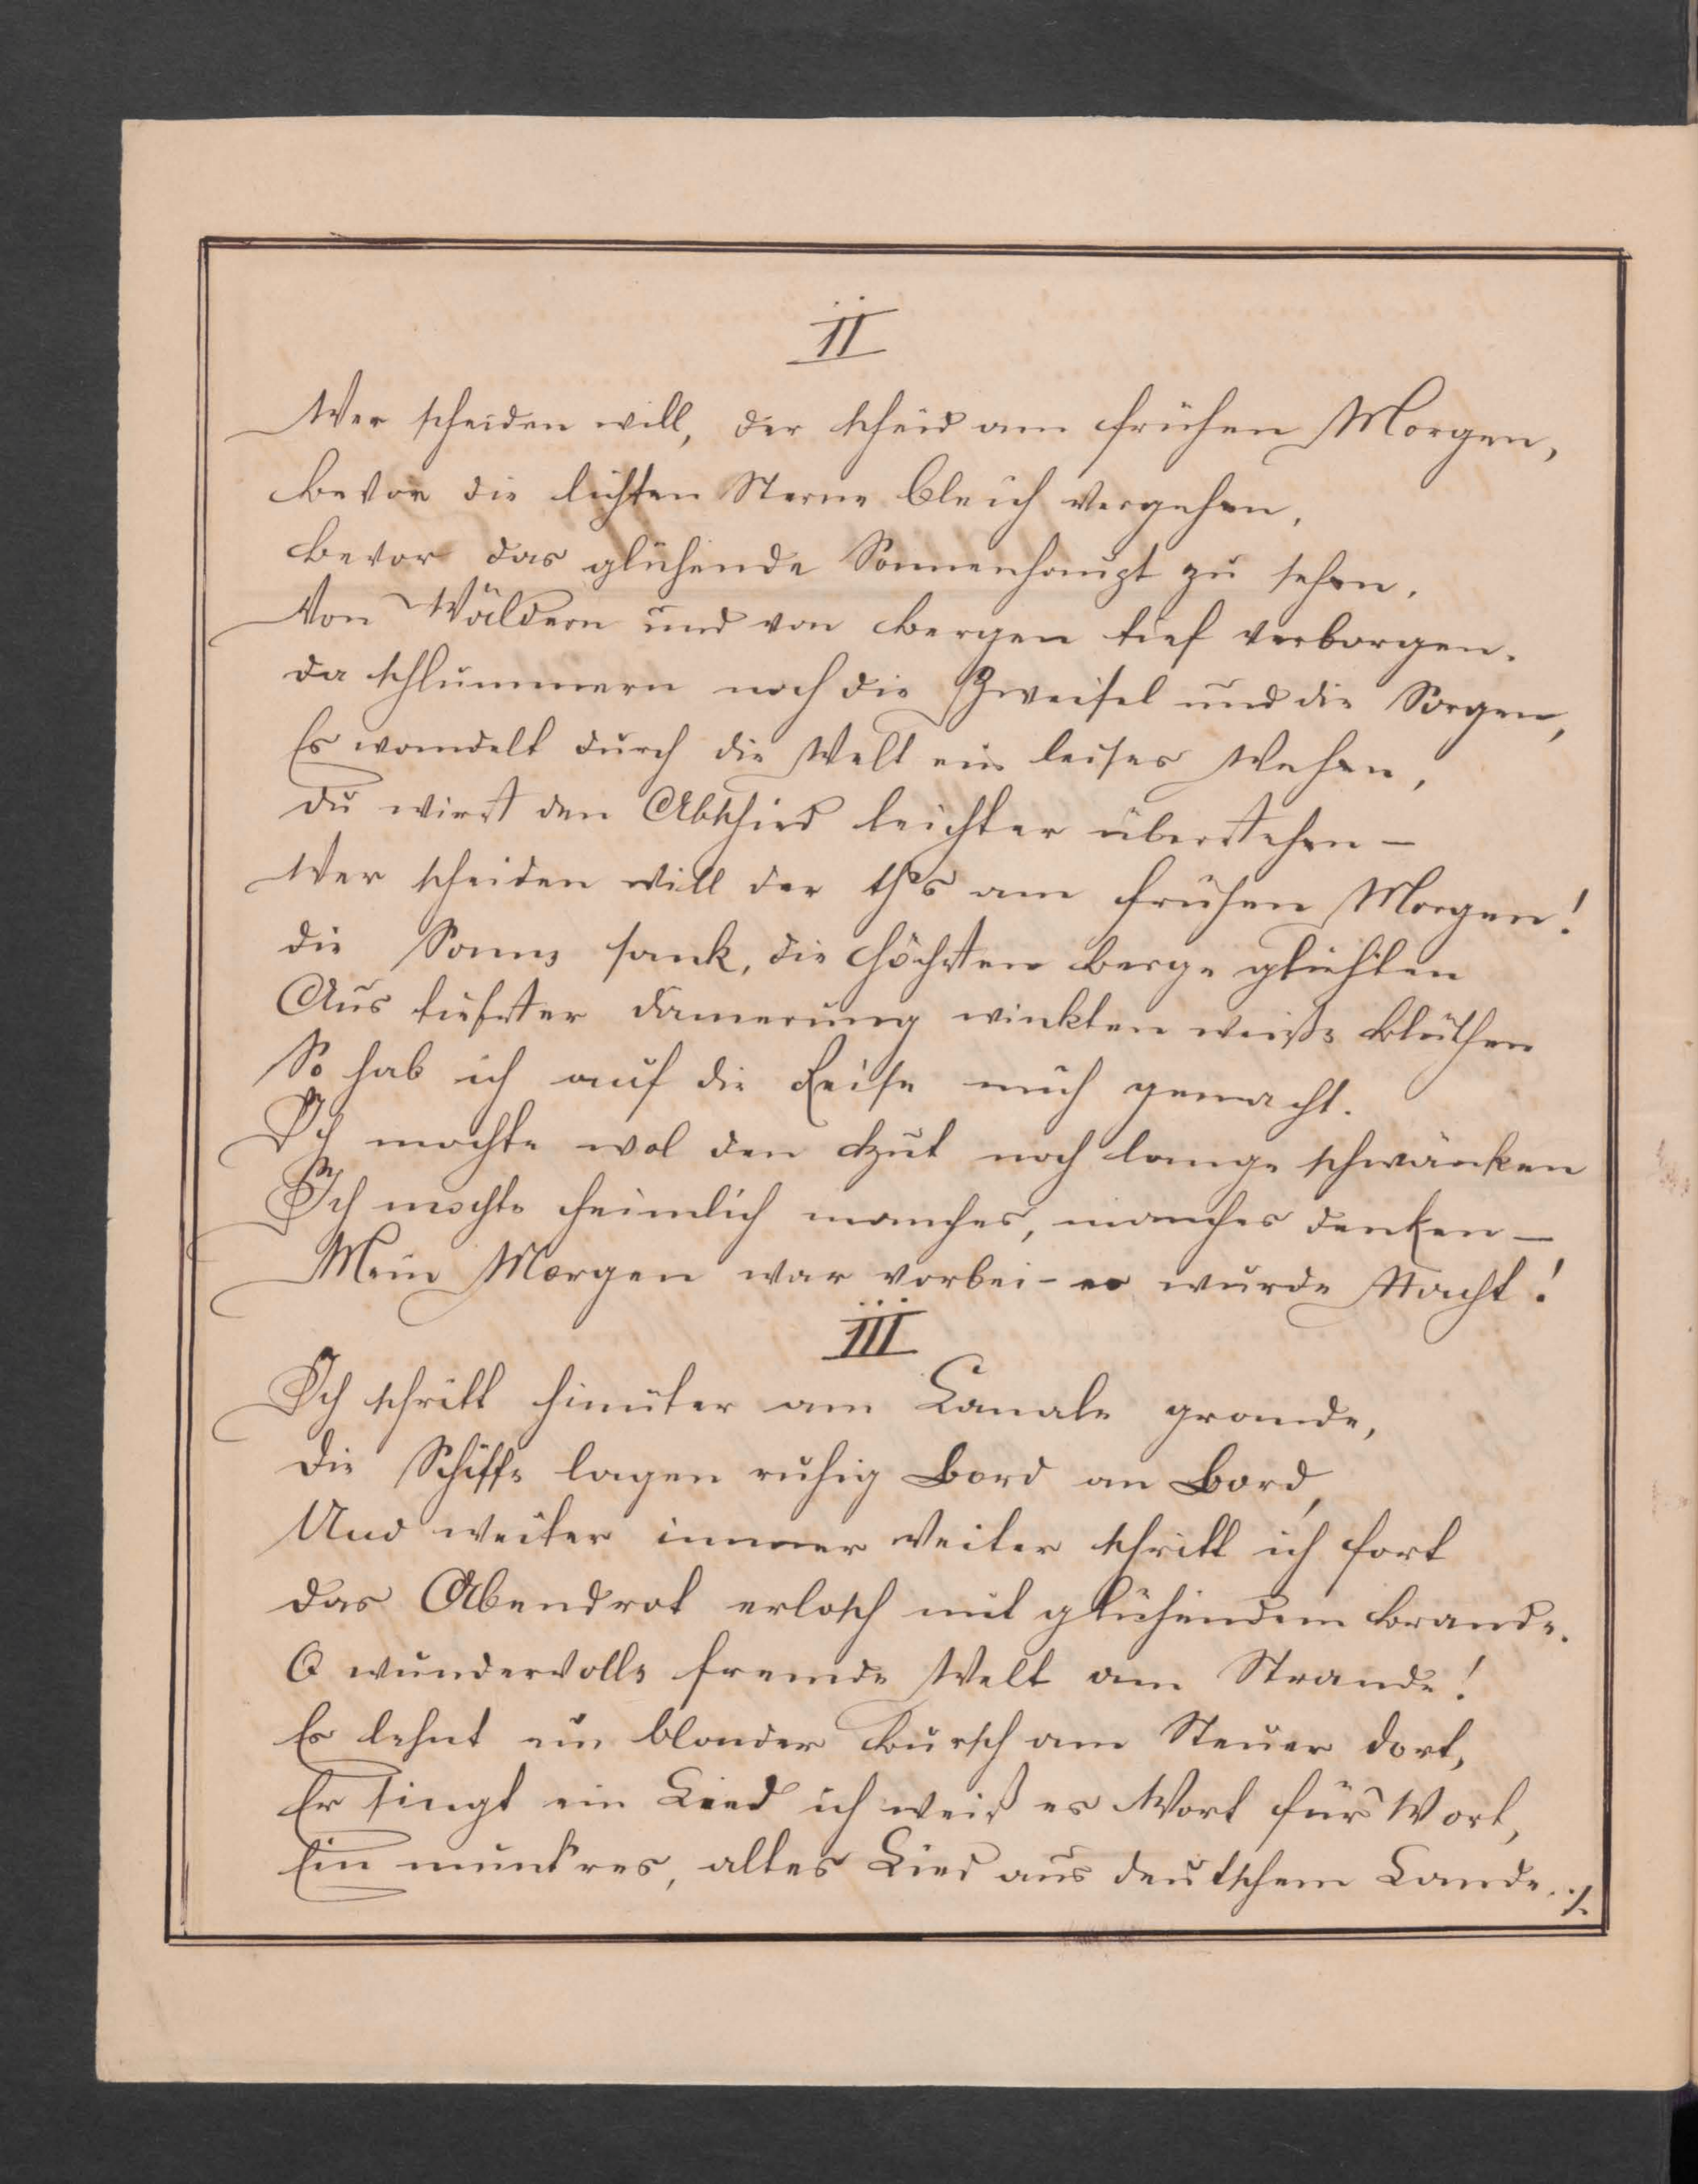 II
Wer scheiden will, der scheid am frühen Morgen,
bevor die lichten Sterne bleich vergehen,
bevor das glühende Sonnenhaupt zu sehen,
Von Wäldern und von Bergen tief verborgen.
da schlummern noch die Zweifel und die Sorgen,
Es wandelt durch die Welt ein leises Wehen,
du wirst den Abschied leichter überstehen –
Wer scheiden will der am frühen Morgen!
die Sonne sank, die höchsten Berge glühten
Aus tiefster Dämerung winkten weiße Blüthen
So hab ich auf die Reise mich gemacht.
Ich mochte wol den Hut noch lange schwänken
Ich mochte heimlich manches, manches denken –
Mein Morgen war vorbei – es wurde Nacht!
III
Ich schritt hinuter am Canale grande,
die Schiffe lagen ruhig Bord an Bord,
Und weiter immer weiter schritt ich fort
das Abendrot erlosch mit glühendem Brande.
O wundervolle fremde Welt am Strande!
Es lehnt ein blonder Bursch am Steuer dort,
Er singt ein Lied ich weiß es Wort für Wort,
Ein munt'res, altes Lied aus deutschem Lande. ./.